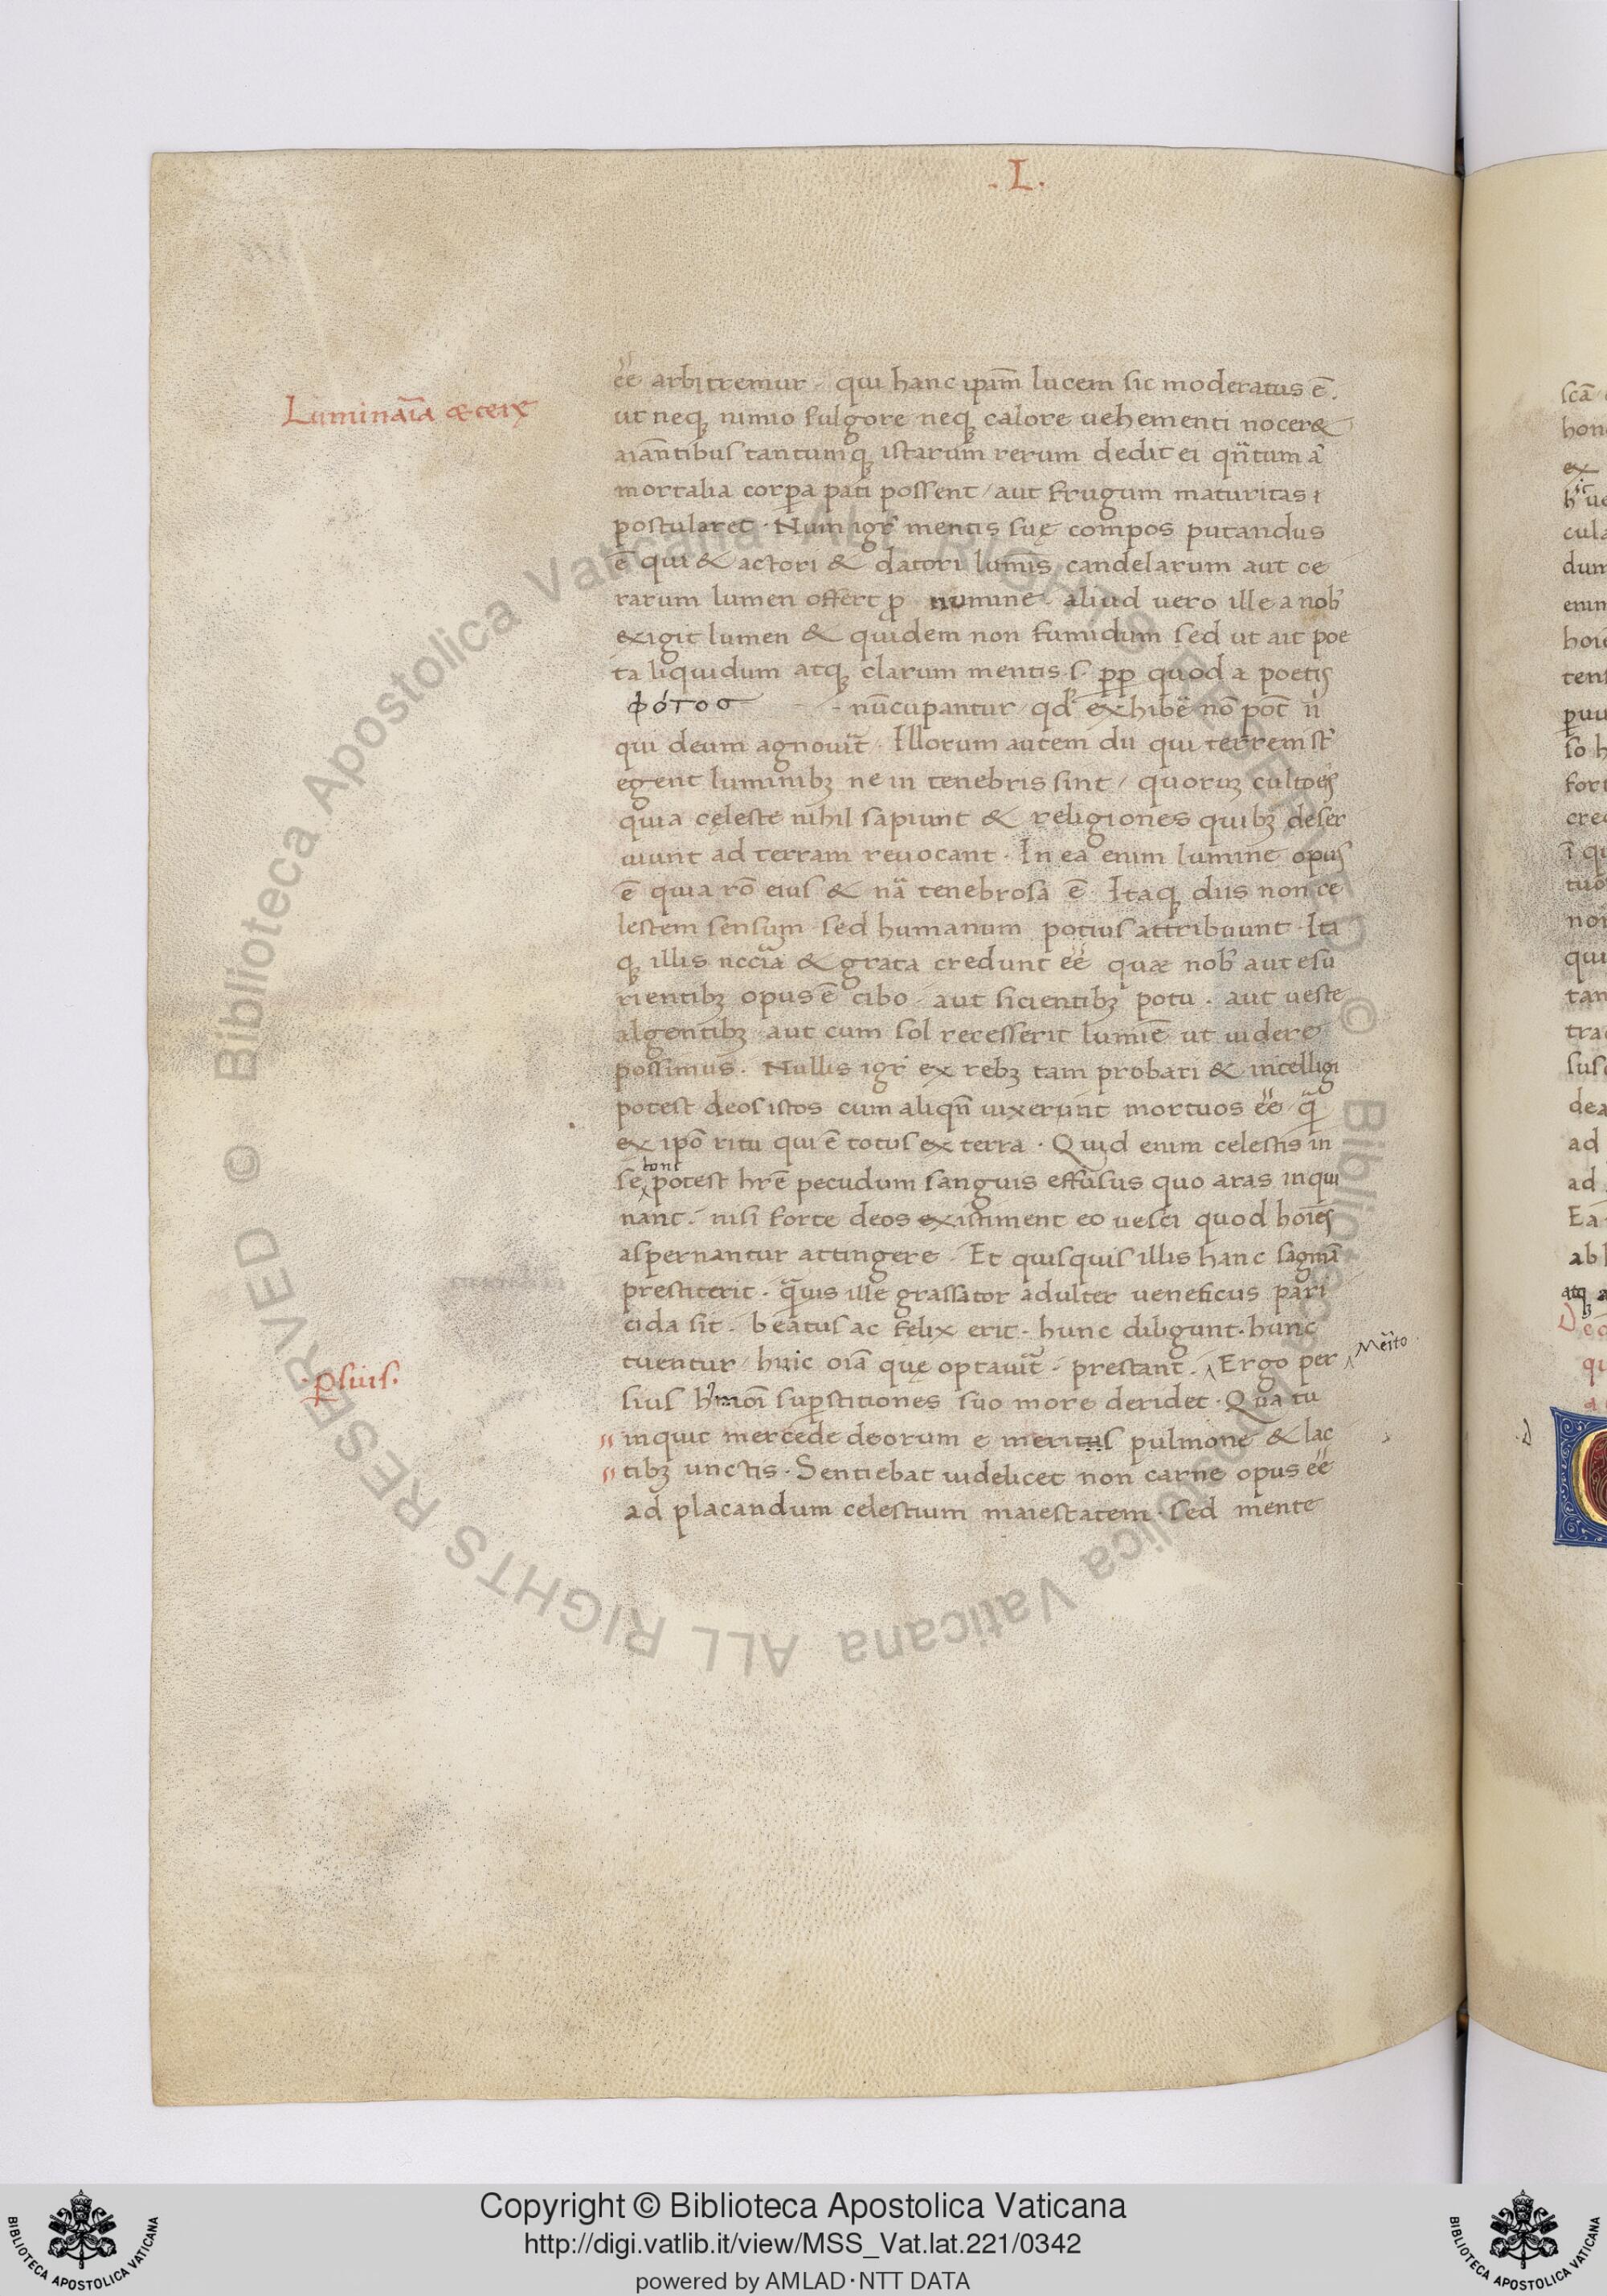 . L .
ēē arbitremur · qui hanc ipām lucem sic moderatus ē.
Lumināia & ceix
ut neq; nimio fulgore neq; calore uehementi nocer&
aiāntibus tantumq; istarum rerum dedit ei qn̄tum a
mortalia corpa pati possent / aut frugum maturitas
postularet · Num igr̄ mentis suę compos putandus
ē qui & actori & datori lumīs candelarum aut ce
rarum lumen offert p numine · aliud uero ille a nob
exigit lumen & quidem non fumidum sed ut ait poe
ta liquidum atq; clarum mentis .s. pp quod a poetis
φότοσ nūcupantur / qd exhibē nō pōt n
qui deum agnouīt · Illorum autem dii qui terreni st
egent luminib; ne in tenebris sint / quorum cultoēs
quia cęleste nihil sapiunt & religiones quib; deser
uiunt ad terram reuocant · In ea enim lumine opus
ē quia rō eius & nā tenebrosa ē · Itaq; diis non ce
lestem sensum sed humanum potius attribuunt · Ita
q; illis nccīa & grata credunt ēē quæ nob aut esu
rientib; opus ē cibo / aut sicientib; potu . aut ueste
algentib; aut cum sol recesserit lumīe ut uidere
possimus . Nullis igr̄ ex reb; tam probari & intelligi
potest deos istos cum aliqn̄ uixerunt mortuos ēē / q
ex ipō ritu qui ē totus ex terra · Quid enim celestis in
se potest hr̄e pecudum sanguis effusus quo aras inqui
nant · nisi forte deos existiment eo uesci quod hoīes
aspernantur attingere · Et quisquis illis hanc sagīnā
prestiterit · q̄uis ille grassator adulter ueneficus pari
cida sit · beatus ac felix erit · hunc diligunt · hunc
tuentur / huic oīa quę optauīt · prestant · Ergo per
Mēito
· psius ·
sius hmōi supstitiones suo more deridet · Qua tu
inquit mercede deorum e meritus pulmone & lac
tib; unctis · Sentiebat uidelicet non carne opus ēē
ad placandum celestium maiestatem · sed mente
Copyright © Biblioteca Apostolica Vaticana
http://digi.vatlib.it/view/MSS_Vat.lat.221/0342
powered by AMLAD·NTT DATA
BIBLIOTECA APOSTOLICA VATICANA
BIBLIOTECA APOSTOLICA VATICANA